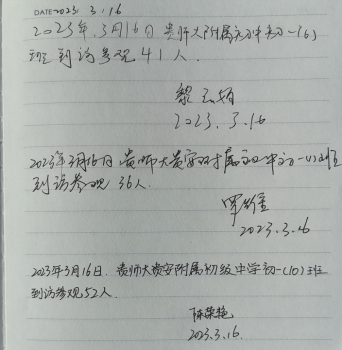 DATE 2023. 3. 16
2023年.3月16日 贵师大附属初中初一(6)
班到访参观41人.
2023.3.16
2023年3月16日贵师大贵安附属初中初一(1)班
到访参观 36人.
2023.3.16
2023年3月16日.贵师大贵安附属初级中学初一(10)班
到访参观52人
陈荣艳
2023.3.16.